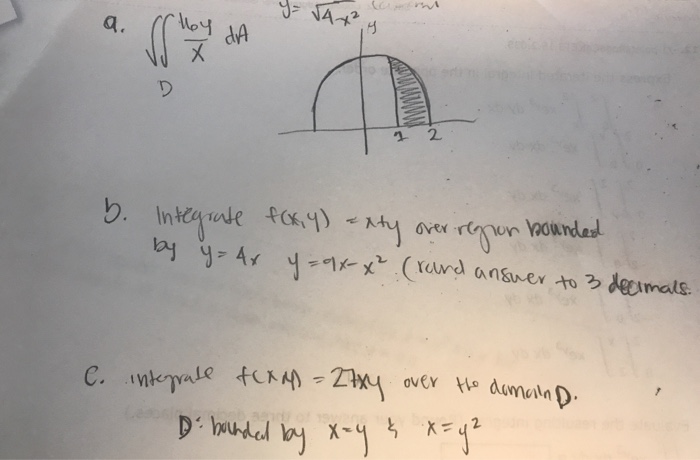 a. ∬ 16y/x dA
D
y = √4-x²
y
1 2
b. Integrate f(x,y) = x+y over region bounded
by y = 4x y = 9x-x² (round answer to 3 decimals.
C. integrate f(x,y) = 27xy over the domain D.
D: bounded by x=y & x=y²